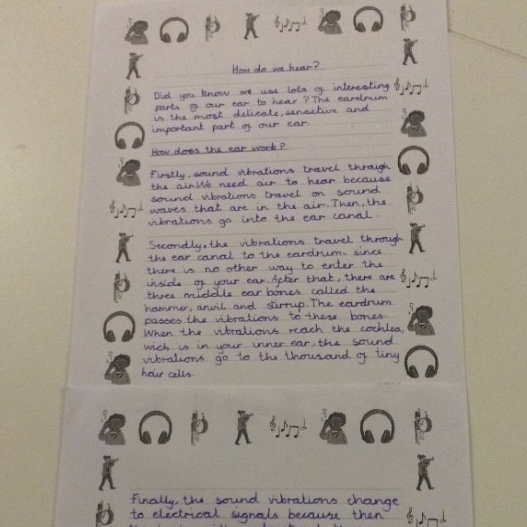 How do we hear?
Did you know we use lots of interesting
parts of our ear to hear? The eardrum
is the most delicate, sensetive and
important part of our ear.
How does the ear work?
Firstly, sound vibrations travel through
the air. We need air to hear because
sound vibrations travel on sound
waves that are in the air. Then, the
vibrations go into the ear canal.
Secondly, the vibrations travel through
the ear canal to the eardrum. since
there is no other way to enter the
inside of your ear. After that, there are
three middle ear bones called the
hammer, anvil and stirrup. The eardrum
passes the vibrations to these bones.
When the vibrations reach the cochlea,
wich is in your inner ear, the sound
vibrations go to the thousand of tiny
hair cells.
Finally, the sound vibrations change
to electrical signals because then